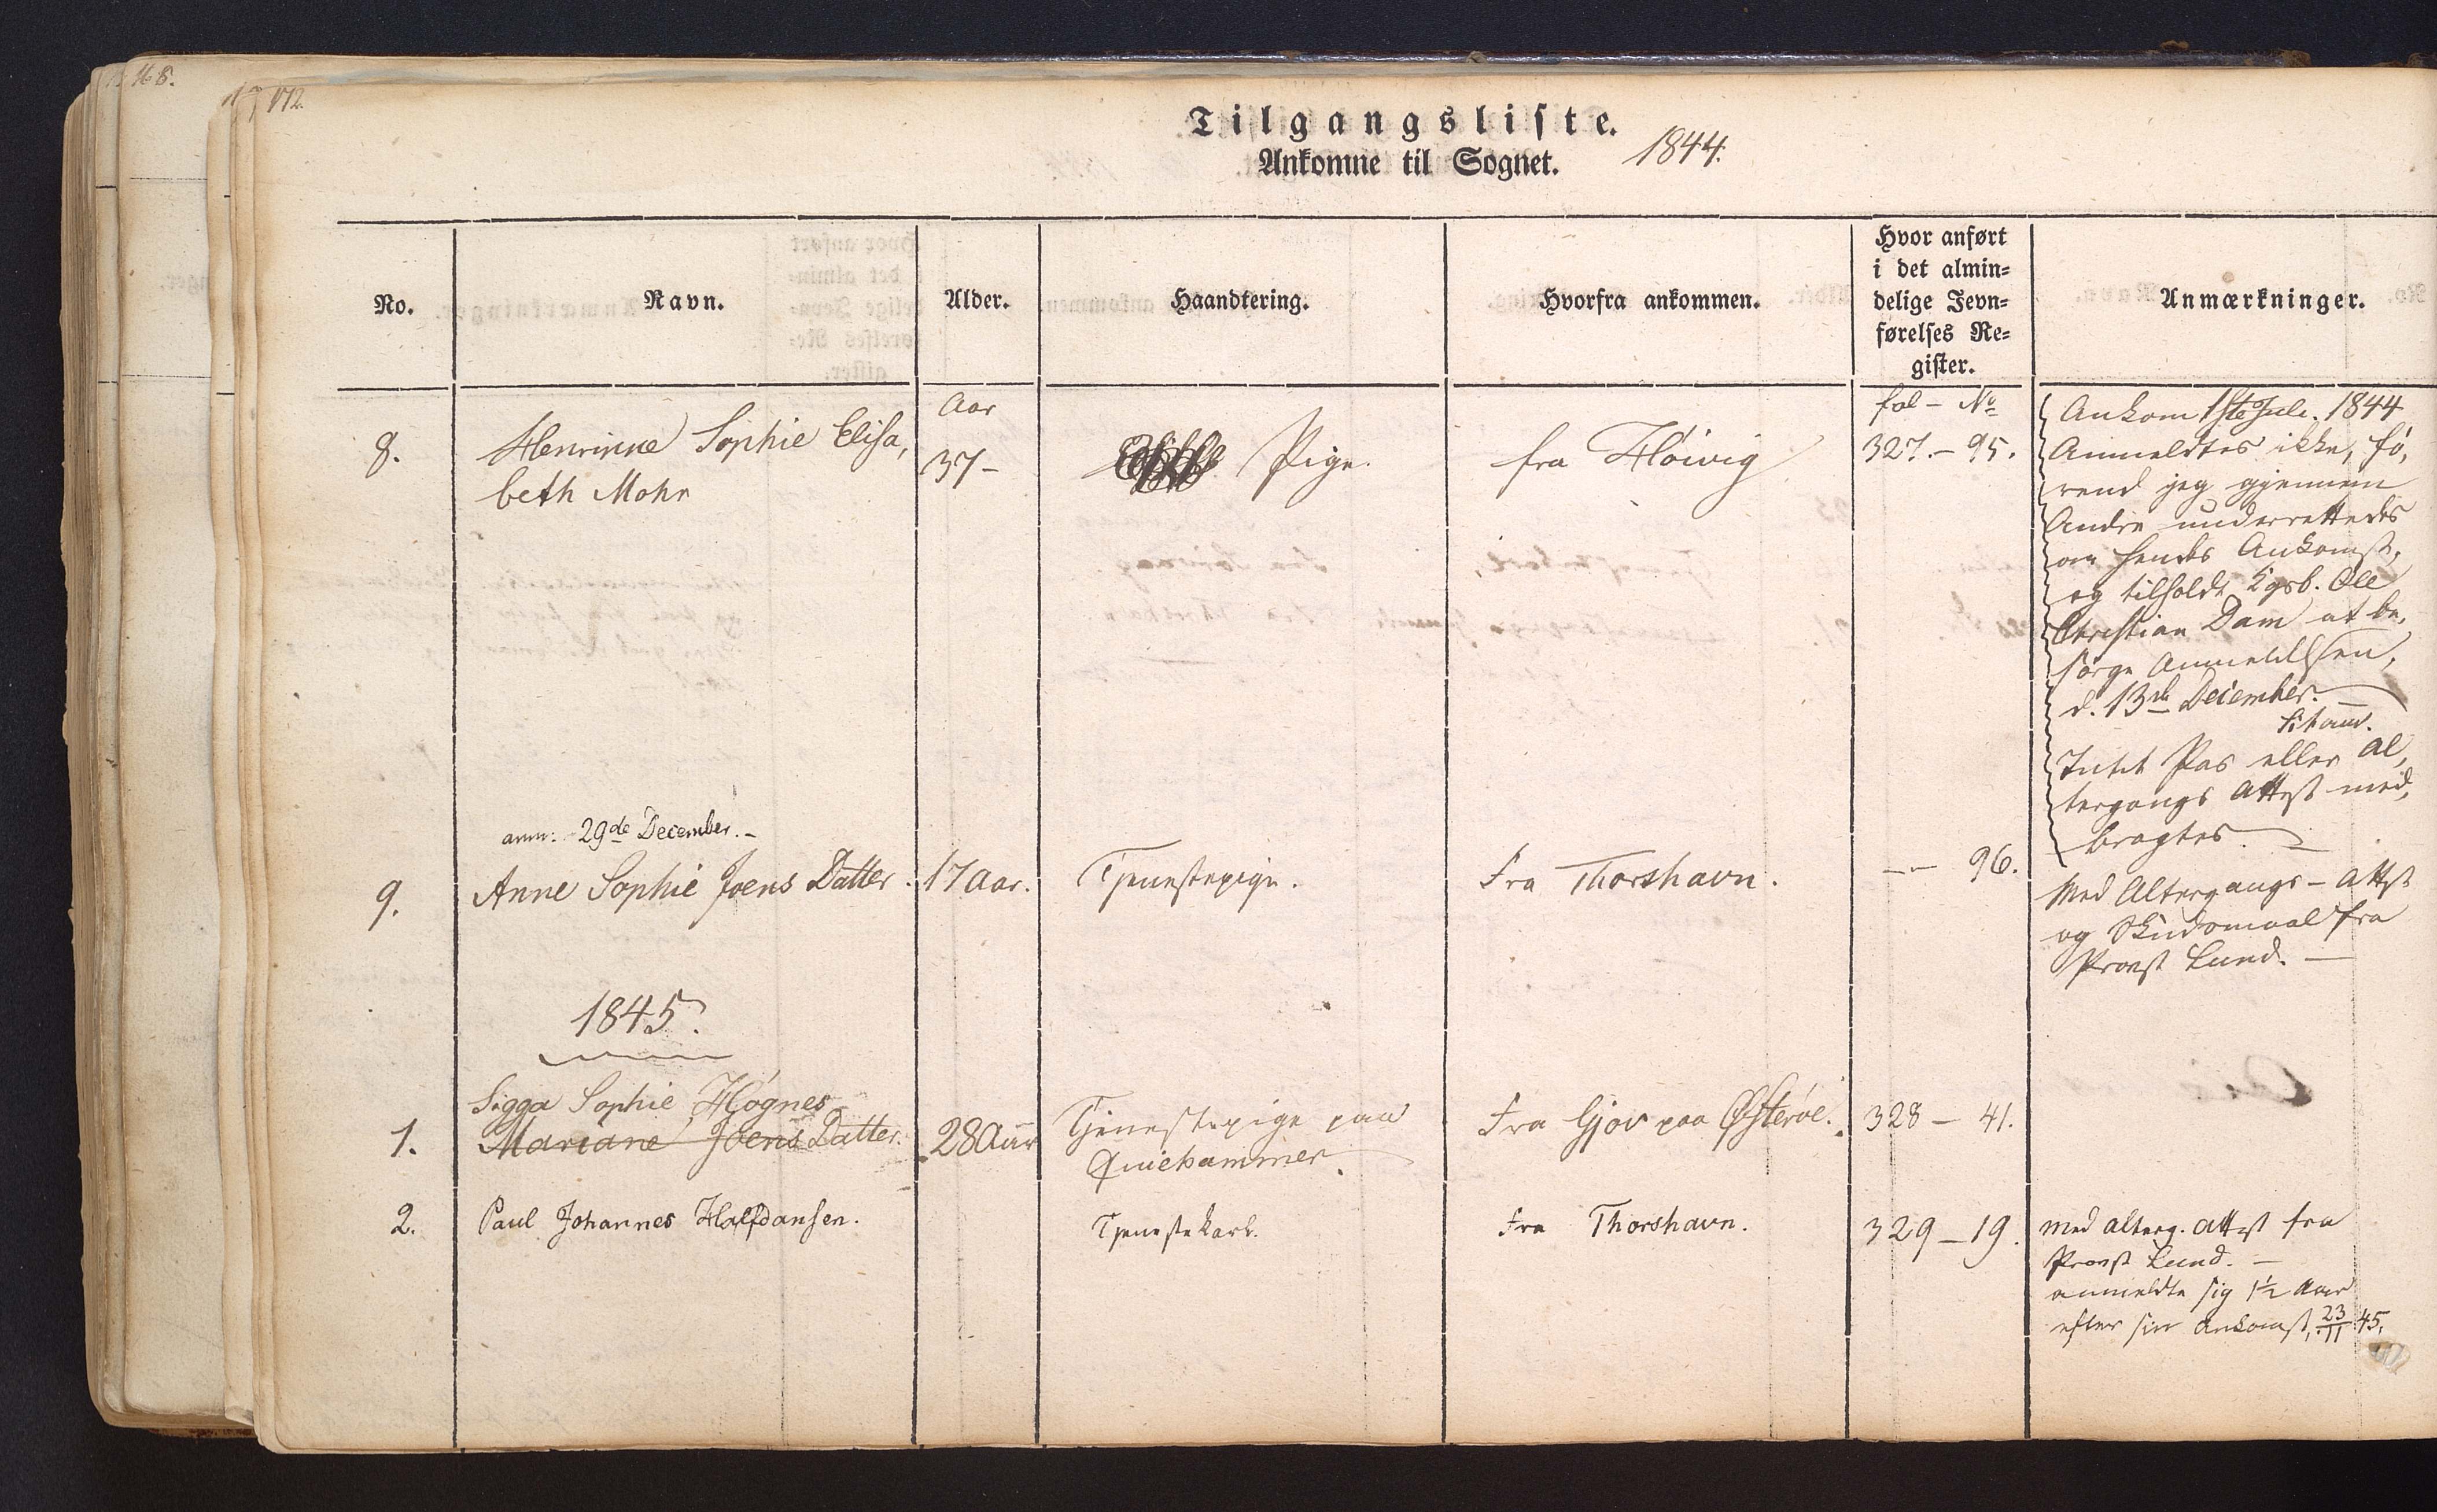 168.
172.
Tilgangsliste.
Ankomne til Sognet. 1844.
No. Navn. Alder. Haandtering. Hvorfra ankommen. Hvor anført i det almin= delige Jevn= førelses Re= gister. Anmærkninger.
Aar
fol - No
8. Henrinne Sophie Elisa,
beth Mohr
37-
Pige.
fra Høivig
327.- 95.
Ankom 1ste Juli. 1844
Anmeldtes ikke, fø,
rend jeg gjennem
Andre underrettedes
om hendes Ankomst,
og tilholdt Kgsb. Ole
Christian Dam at be,
sørge Anmeldelsen,
d. 13de December.
Intet Pas eller Al,
tergangs Attest med,
bragtes.
anm: 29de December.-
9. Anne Sophie Joens Datter.
17 Aar.
Tjenestepige.
Fra Thorshavn.
-- 96.
Med Altergangs-Attst
og Skudsmaal fra
Provst Lund. -
1845.
Sigga Sophie Høgnes
1. Mariane Joens Datter.
28 Aar
Tjenestepige paa
Qviehammer.
Fra Gjov paa Østerøe.
328 - 41.
2. Paul Johannes Halfdansen.
Tjenestekarl.
Fra Thorshavn.
329 - 19.
med alterg. Attst fra
Provst Lund. -
anmeldte sig 1½ Aar
efter sin Ankomst, 23/11 45.